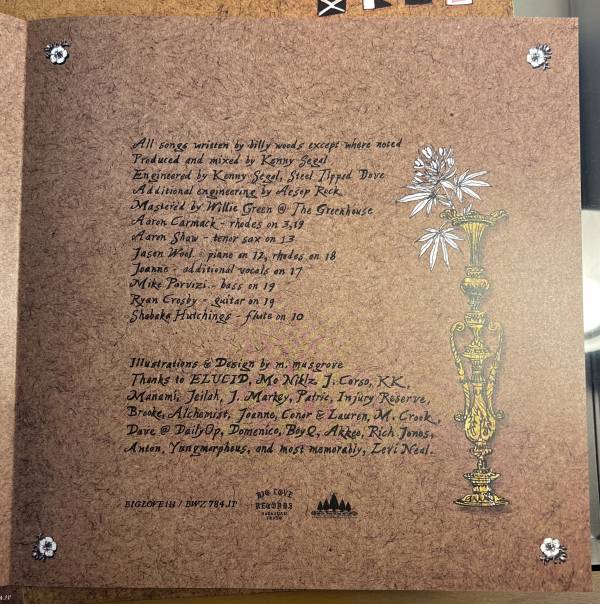 All songs written by billy woods except where noted
Produced and mixed by Kenny Segal
Engineered by Kenny Segal, Steel Tipped Dove
Additional engineering by Aesop Rock
Mastered by Willie Green @ The Greenhouse
Aaron Carmack - rhodes on 3,19
Aaron Shaw - tenor sax on 13
Jason Wool - piano on 12, rhodes on 18
Joanne - additional vocals on 17
Mike Parvizi - bass on 19
Ryan Crosby - guitar on 19
Shabaka Hutchings - flute on 10
Illustrations & Design by m. musgrove
Thanks to ELUCID, Mo Niklz, J. Corso, KK,
Manami, Jeilah, J. Markey, Patric, Injury Reserve,
Brooke, Alchemist, Joanne, Conor & Lauren, M. Crook,
Dave @ DailyOp, Domenico, BoyQ, Akkeo, Rich Jones,
Anton, Yungmorpheus, and most memorably, Levi Neal.
BIGLOVE / BWZ 784.JP
BIG LOVE
RECORDS